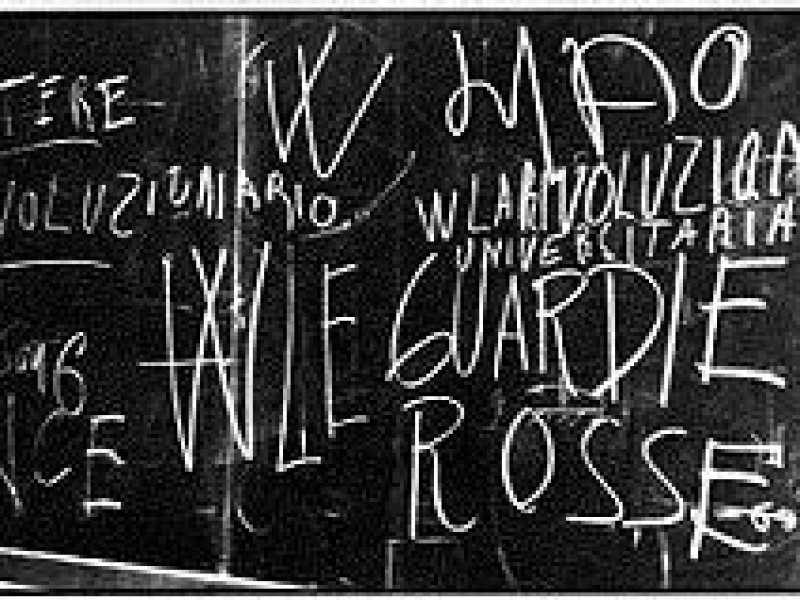 TERE
W MAO
VOLUZIONARIO
W LA RIVOLUZIONA
UNIVERSITARIA
W LE GUARDIE
ROSSE
CE